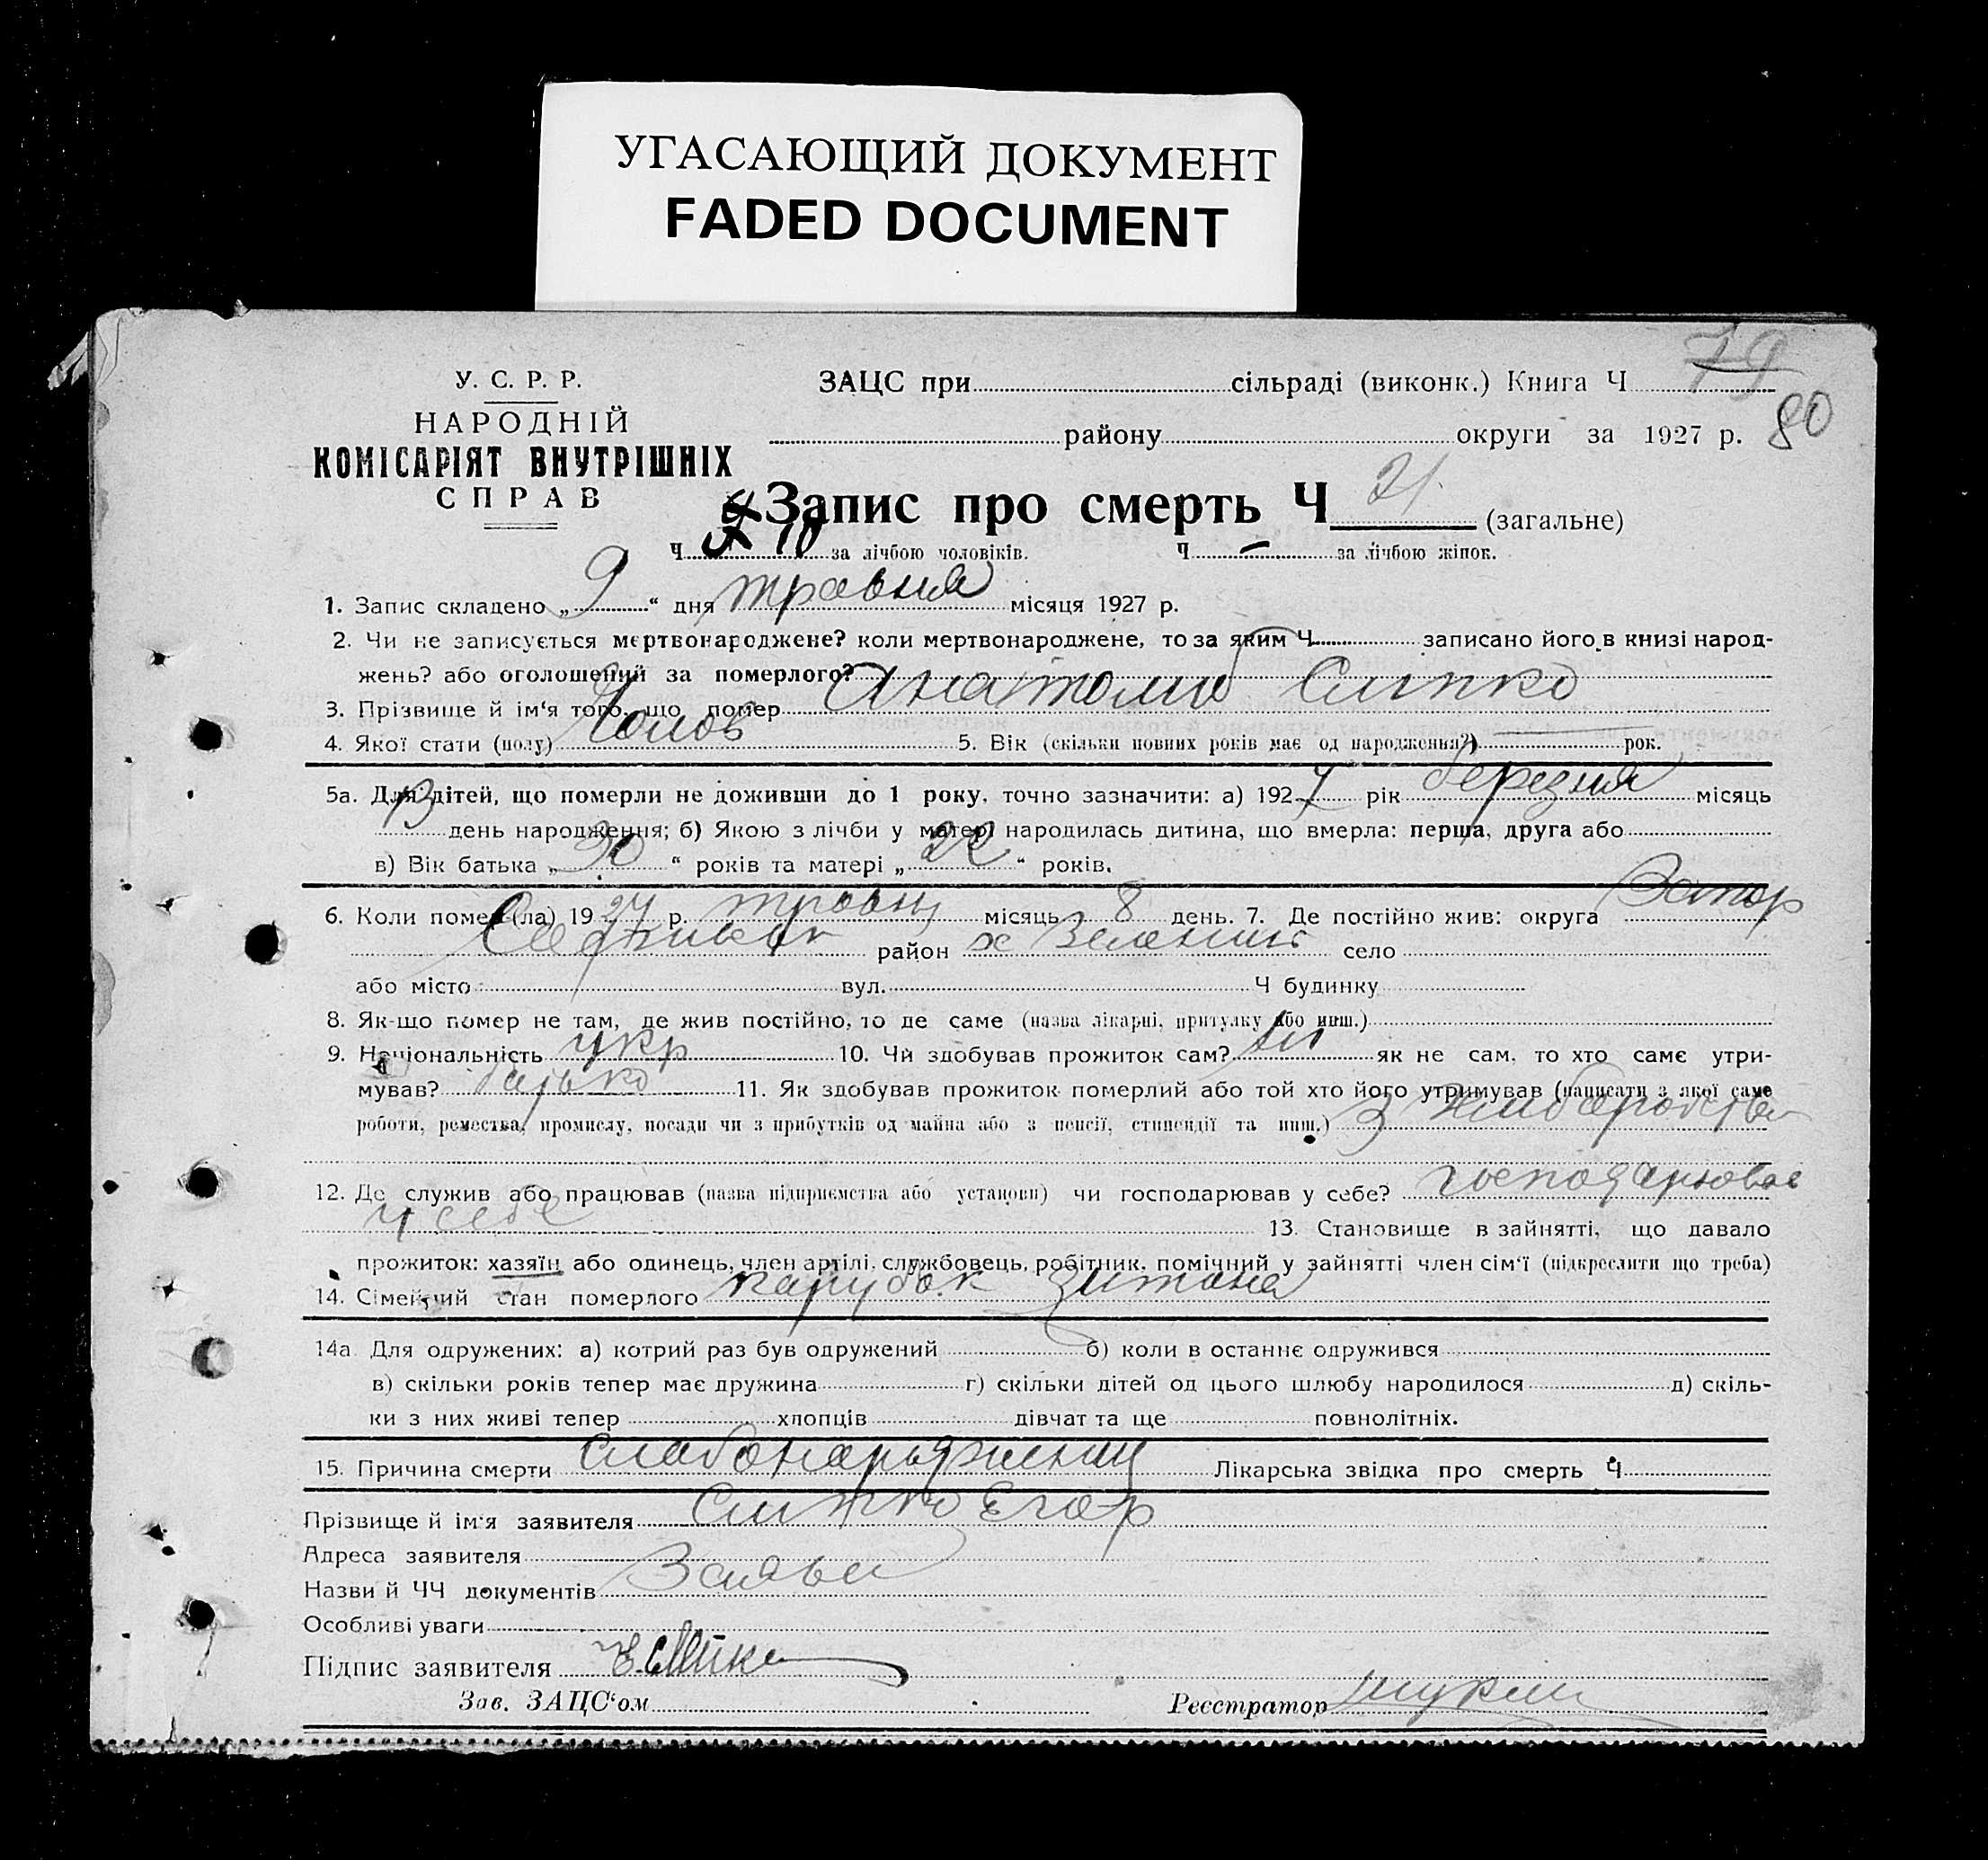 УГАСАЮЩИЙ ДОКУМЕНТ
FADED DOCUMENT
79
80
У. С. Р. Р.
НАРОДНІЙ
КОМІСАРІЯТ ВНУТРІШНІХ
СПРАВ
ЗАЦС при сільраді (виконк.) Книга Ч
району округи за 1927 р.
Запис про смерть Ч 21 (загальне)
Ч 10 за лічбою чоловіків. Ч — за лічбою жінок.
1. Запис складено „ 9 “ дня травня місяця 1927 р.
2. Чи не записується мертвонароджене? коли мертвонароджене, то за яким Ч записано його в книзі народ-
жень? або оголошений за померлого?
3. Прізвище й ім‘я того, що помер Анатолий Слипко
4. Якої стати (полу) Чолов 5. Вік (скільки повних років має од народження?) рок.
5а. Для дітей, що померли не доживши до 1 року, точно зазначити: а) 1927 рік березня місяць
13 день народження; б) Якою з лічби у матері народилась дитина, що вмерла: перша, друга або
в) Вік батька „ 30 “ років та матері „ 22 “ років.
6. Коли помер (ла) 1927 р. травня місяць 8 день. 7. Де постійно жив: округа Запор
район х Зелений село
або місто вул. Ч будинку
8. Як-що помер не там, де жив постійно, то де саме (назва лікарні, притулку або инш.)
9. Національність укр 10. Чи здобував прожиток сам? ні як не сам, то хто саме утри-
мував? батько 11. Як здобував прожиток померлий або той хто його утримував (написати з якої саме
роботи, ремества, промислу, посади чи з прибутків од майна або з пенсії, стипендії та инш.) З
12. Де служив або працював (назва підприємства або установи) чи господарював у себе? господарював
у себе 13. Становище в зайнятті, що давало
прожиток: хазяїн або одинець, член артілі, службовець, робітник, помічний у зайнятті член сім‘ї (підкреслити що треба)
14. Сімейний стан померлого парубок
14а. Для одружених: а) котрий раз був одружений б) коли в останнє одружився
в) скільки років тепер має дружина г) скільки дітей од цього шлюбу народилося д) скіль-
ки з них живі тепер хлопців дівчат та ще повнолітніх.
15. Причина смерти Лікарська звідка про смерть Ч
Прізвище й ім‘я заявителя Слипко Егор
Адреса заявителя
Назви й ЧЧ документів Заява
Особливі уваги
Підпис заявителя
Зав. ЗАЦС‘ом Реєстратор